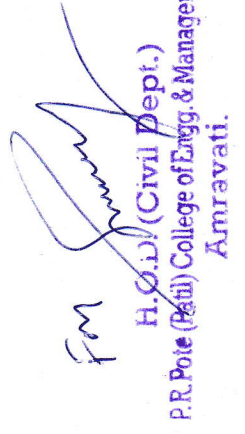 For
H.O.D. (Civil Dept.)
P.R. Pote (Patil) College of Engg. & Manage
Amravati.